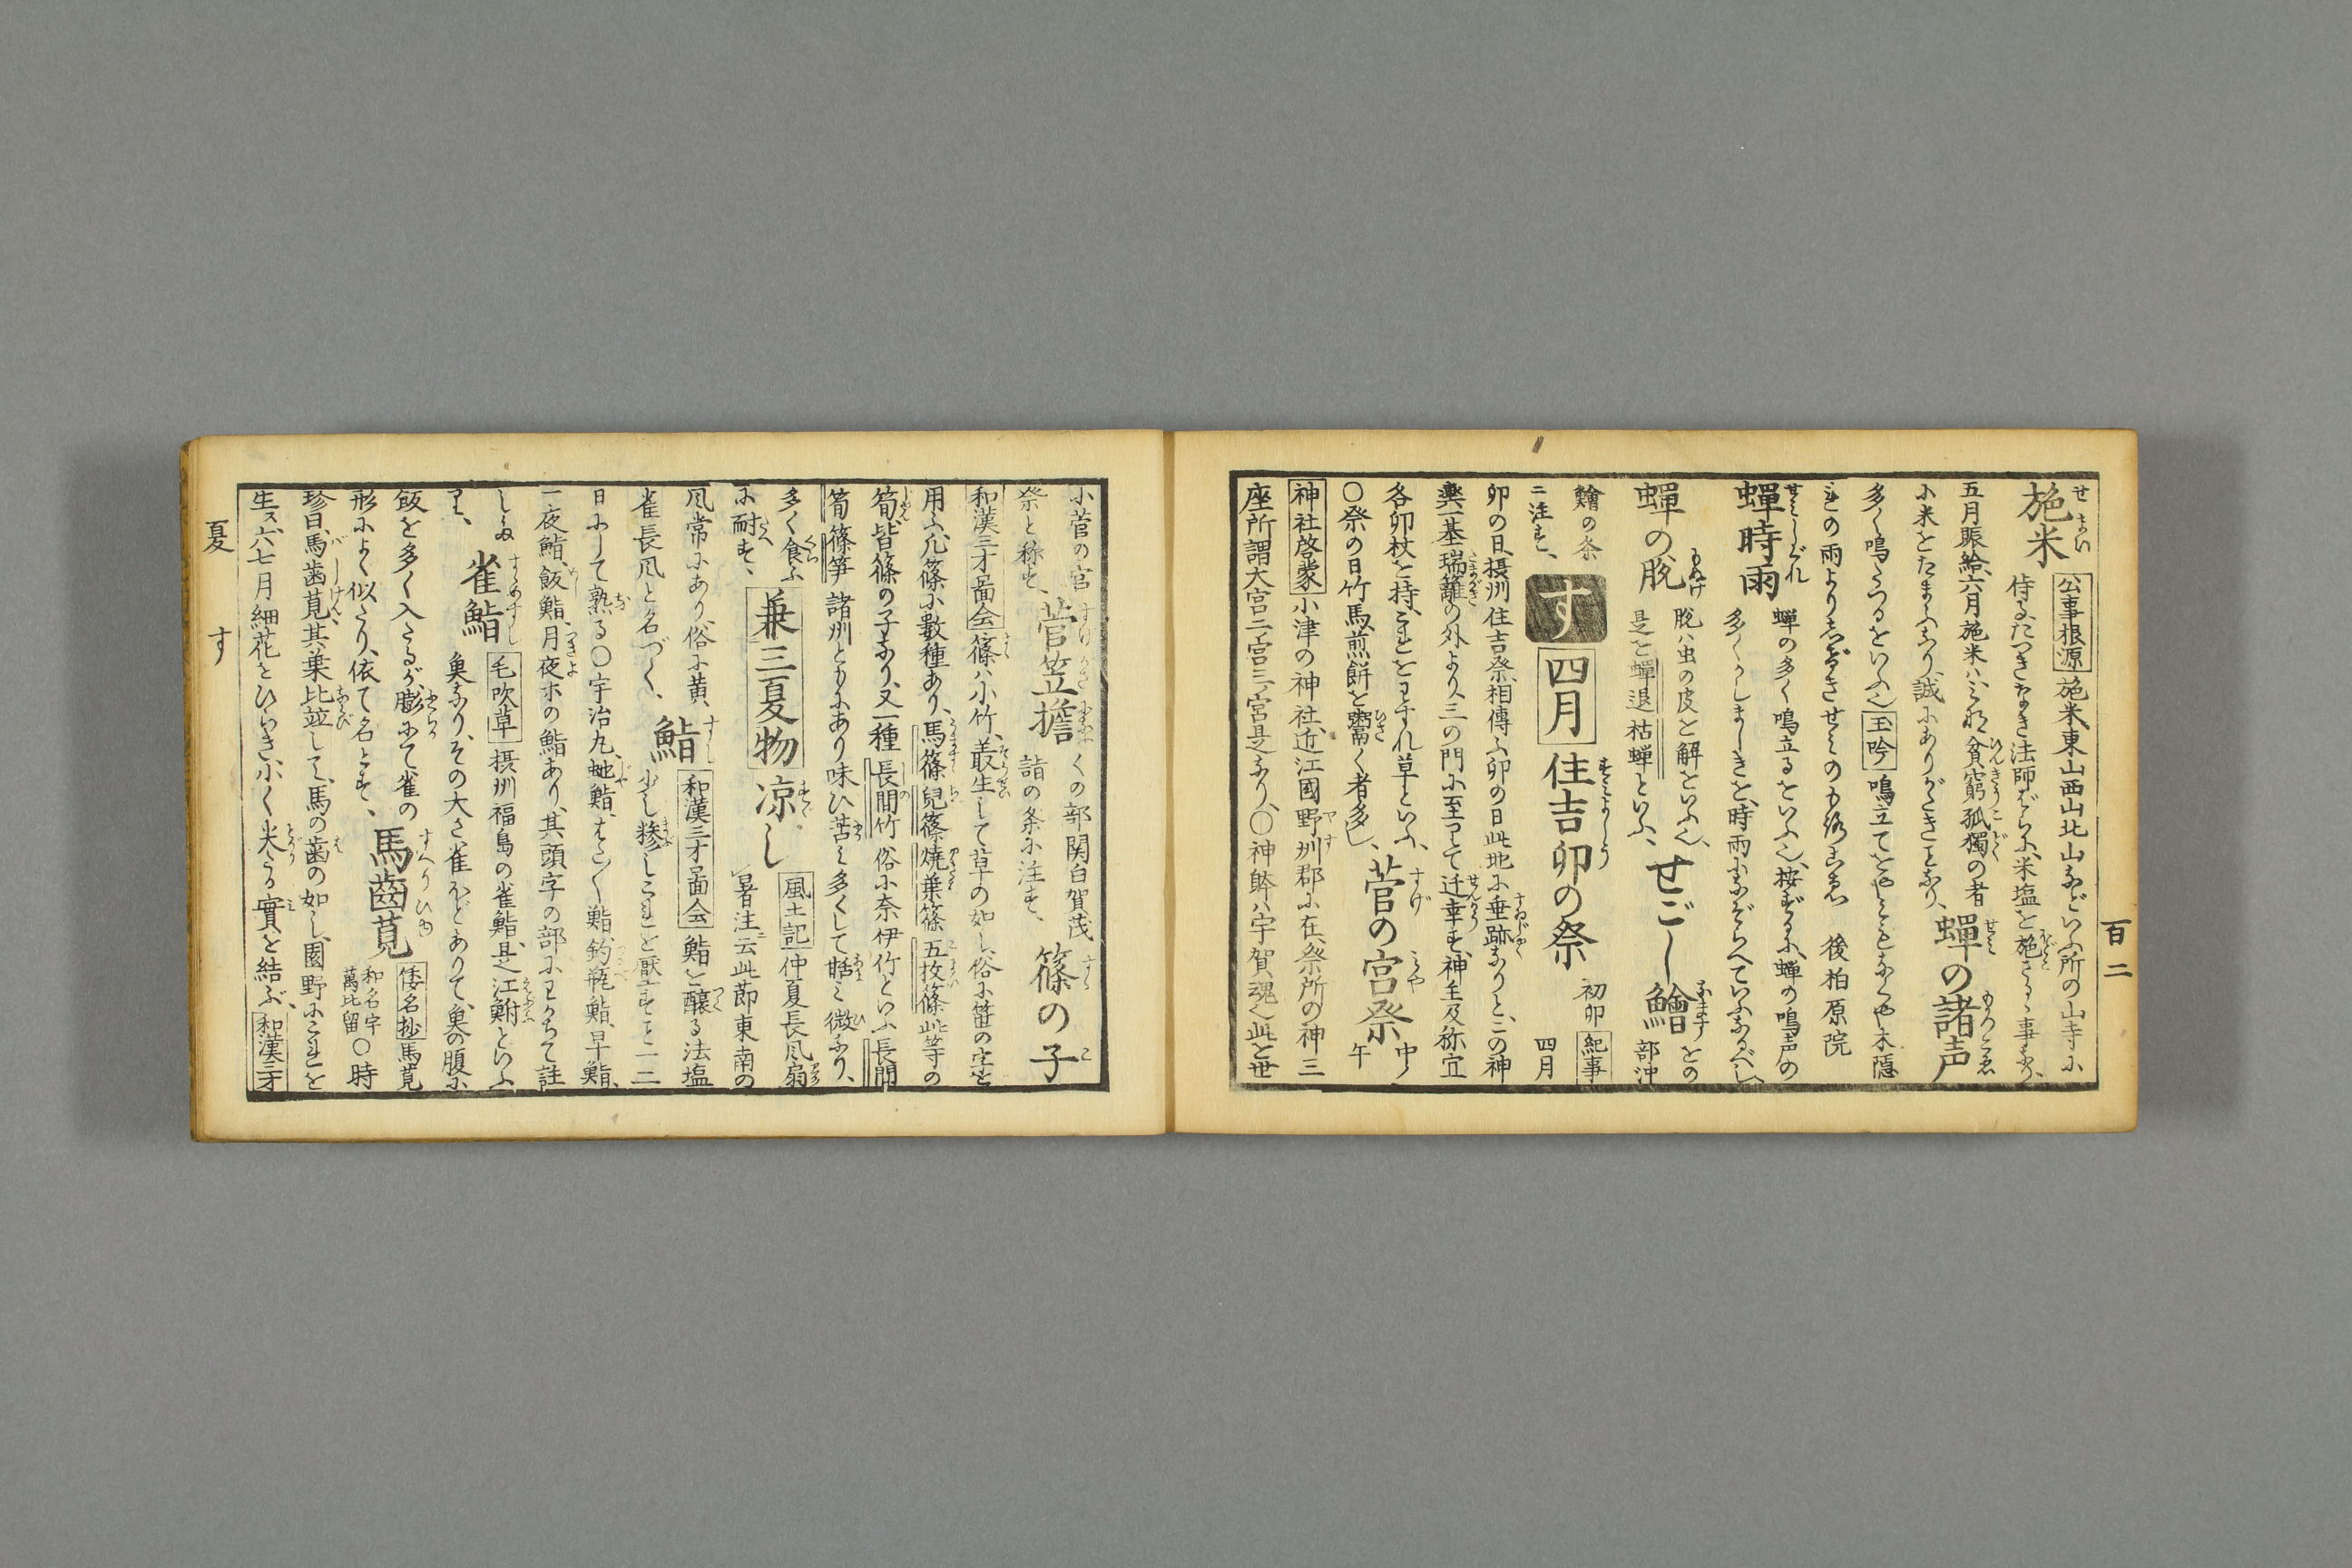 百二
施米 公事根源 施米東山西山北山などいふ所の山寺に
侍るたつきなき法師ばらに米塩を施さるゝ事なり、
五月賑給、六月施米ハミな貧窮孤獨の者
に米をたまふなり、誠にありがたきことなり、 蟬の諸声
多く鳴たつるをいふ也 玉吟 鳴立て
後柏原院
蟬時雨 蟬の多く鳴立るをいふ也、按ずるに、蟬の鳴声の
多くかしましきを、時雨になぞらへていふなるべし、
蟬の脱 脱ハ虫の皮を解をいふ也、
是を蟬退 枯蟬といふ、 せごし鱠 をの
部沖
鱠の条
ニ注す、 す 四月 住吉卯の祭 初卯 紀事
四月
卯の日、摂州住吉祭、相傳ふ卯の日此地に垂跡なりと、この神
輿一基、瑞籬の外より、三の門に至て迁幸す、神主及称宜
各卯杖を持、これをわすれ草といふ、 菅の宮祭 中ノ
午
〇祭の日竹馬、煎餅を鬻く者多し、
神社啓蒙 小津の神社、近江國野州郡に在、祭所の神三
座、所謂大宮二宮三宮是なり、〇神躰ハ宇賀魂也、此を世
小菅の宮
祭と称す、 菅笠擔 くの部関白賀茂
詣の条に注す、 篠の子
和漢三才啚会 篠ハ小竹、叢生して草の如し、俗に笹の字を
用ふ、凡篠に數種あり、馬篠 兒篠 焼葉篠 五枚篠 此等の
筍皆篠の子なり、又一種 長間竹 俗に奈伊竹といふ 長間
筍 篠笋 諸州ともにあり味ひ苦ミ多くして甜ミ微なり、
多く食ふ
に耐す、 兼三夏物 凉し 風土記 仲夏長風扇
暑注云此節東南の
風常にあり、俗に黄
雀長風と名づく、 鮨 和漢三才啚会 鮨を醸る法塩
少し糝しこれを厭すこと一二
日にして熟る〇宇治丸、虵鮨、はらゝ鮨、釣瓶鮨、早鮨、
一夜鮨、飯鮨、月夜ホの鮨あり、其頭字の部にわかちて註
しぬ 雀鮨 毛吹草 摂州福島の雀鮨、是江鮒といふ
魚なり、その大さ雀ほどありて、魚の腹に
飯を多く入たるが、膨にて雀の
形によく似たり、依て名とす、 馬齒莧 倭名抄 馬莧
和名宇
萬比留〇時
珍曰、馬歯莧、其葉比竝して、馬の歯の如し、園野にこれを
生ス、六七月細花をひらき、小く尖る實を結ぶ、 和漢三才
夏 す